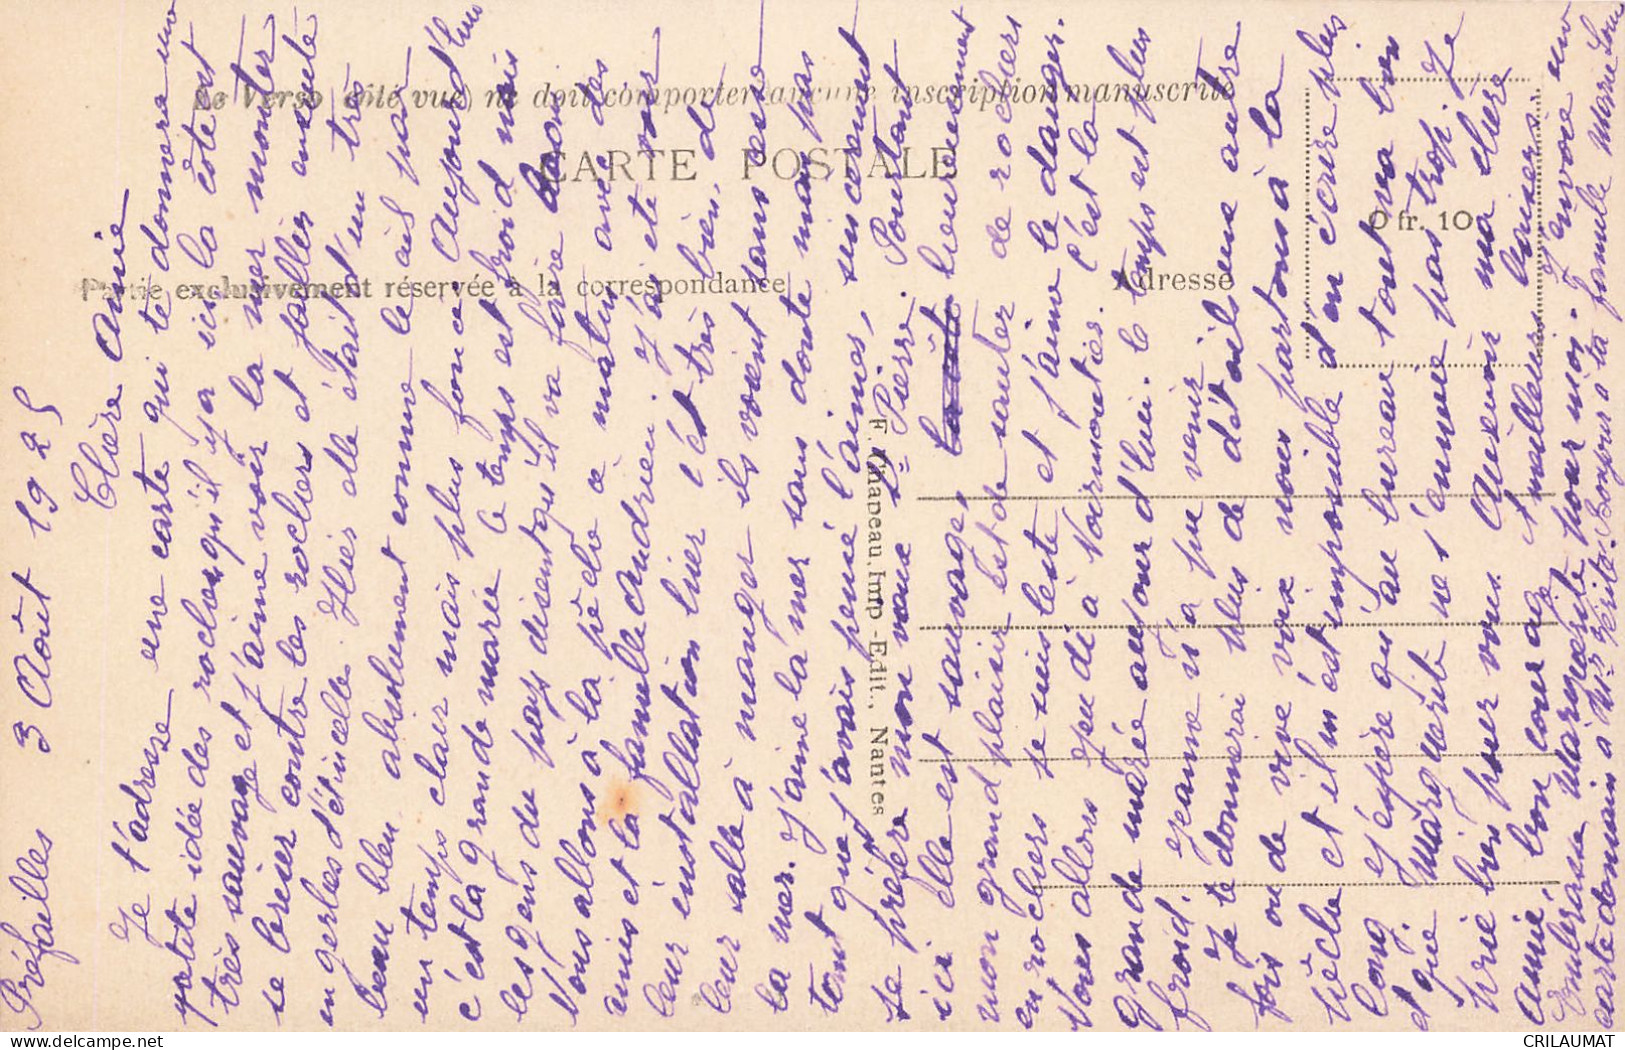 Le Verso (côté vue) ne doit comporter aucune inscription manuscrite
CARTE POSTALE
0 fr. 10
Partie exclusivement réservée à la correspondance
Adresse
F. Chapeau, Imp.-Edit., Nantes
Préfailles 3 Août 1925
Chère Amie
Je t'adresse une carte qui te donnera une
petite idée des rochers qu'il y a ici la côte est
très sauvage et j'aime voir la mer monter
se briser contre les rochers et jaillir ensuite
en gerbes d'étincelles. Hier elle était d'un très
beau bleu absolument comme le ciel par
un temps clair mais plus foncé. Aujourd'hui
c'est la grande marée le temps est froid mais
les gens du pays disent qu'il va faire bon
Nous allons à la pêche ce matin avec des
amis et la famille Andrieu. J'ai été voir
leur installation hier c'est très bien, de
leur salle à manger ils voient sans cesse
la mer. J'aime la mer sans doute mais pas
tant que j'avais pensé l'aimer, sincèrement
je préfère mon vieux St Pierre. Pourtant
ici elle est sauvage, heureusement
mon grand plaisir est de sauter de rochers
en rochers je suis leste et j'aime le danger.
Nous allons jeudi à Noirmoutier. C'est la
grande marée aujourd'hui. le temps est plus
froid. Jeanne n'a pu venir
Je te donnerai plus de détails une autre
fois ou de vive voix nous partons à la
pêche et il m'est impossible d'en écrire plus
long. J'espère qu'au bureau tout va bien
et que Marguerite ne s'ennuie pas trop. Je
prie bien pour vous. Au revoir ma chère
amie, bon courage et meilleurs baisers
Embrasse Marguerite pour moi. J'envoie une
carte demain à Mr Bonjour à ta famille Marie Lou
CRILAUMAT